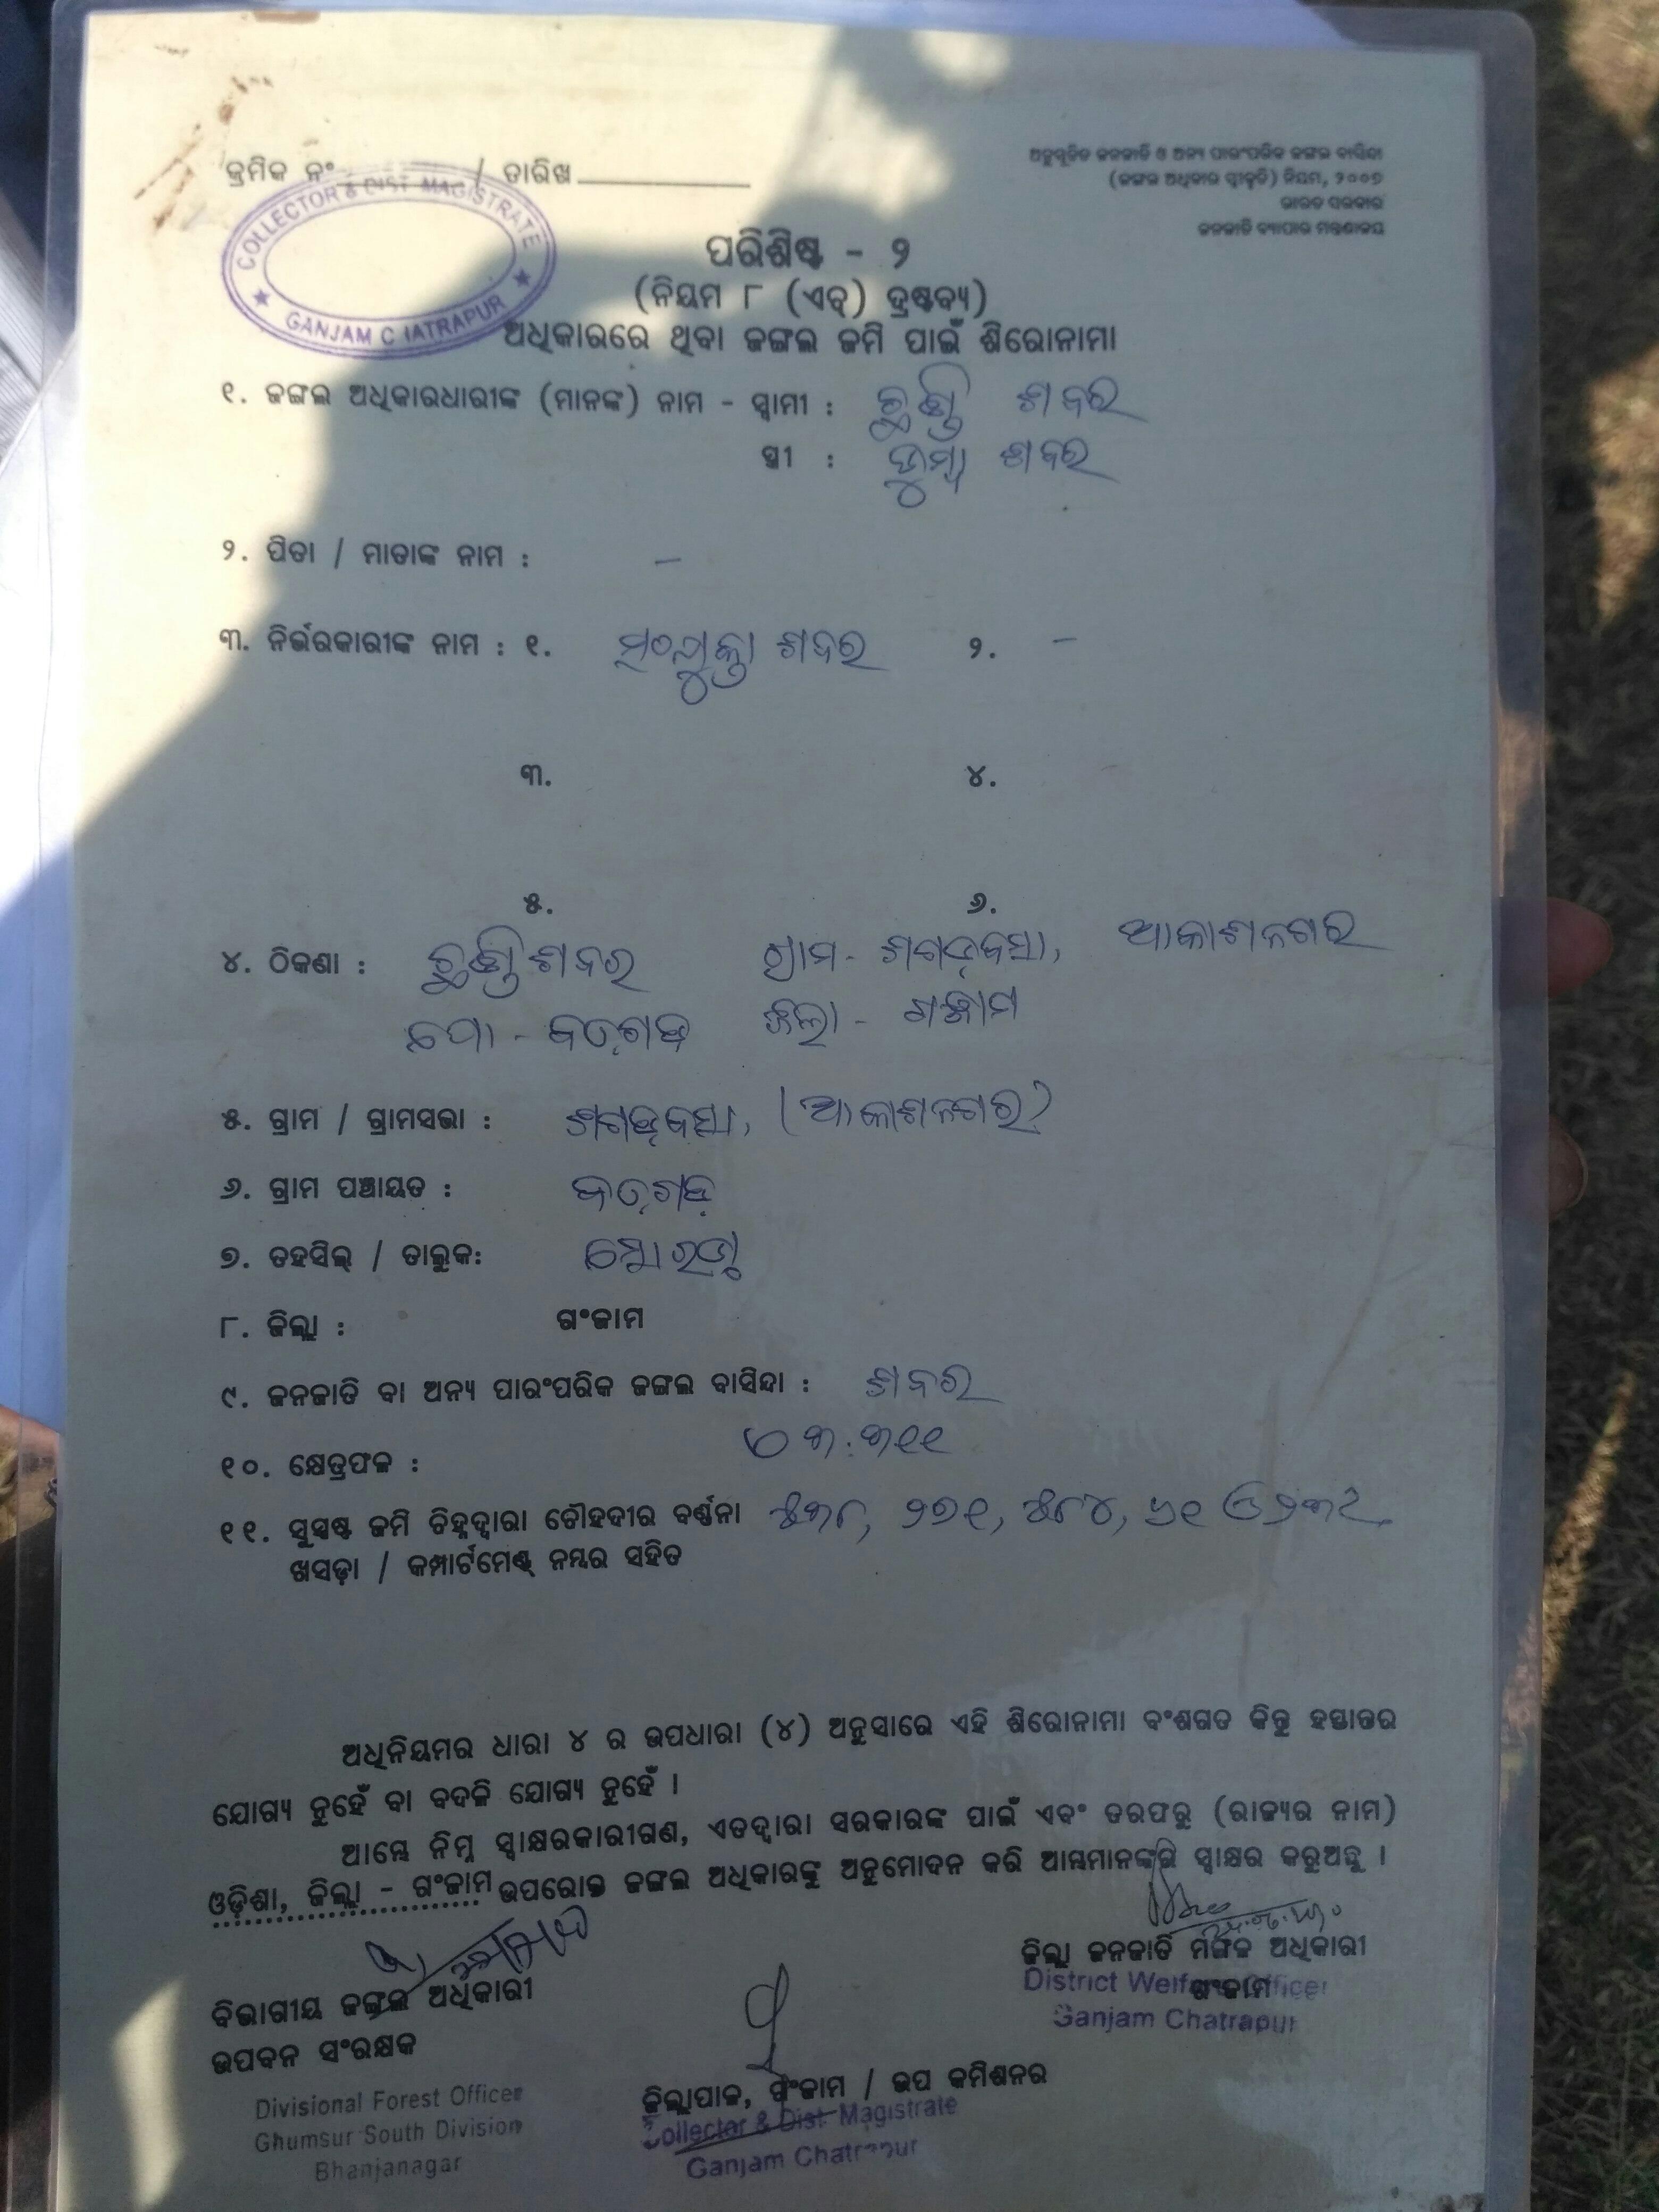 କ୍ରମିକ ନଂ / ତାରିଖ
ଅନୁସୂଚିତ ଜନଜାତି ଓ ଅନ୍ୟ ପାରଂପରିକ ଜଙ୍ଗଲ ବାସିନ୍ଦା
(ଜଙ୍ଗଲ ଅଧିକାର ସ୍ୱୀକୃତି) ନିୟମ, ୨୦୦୭
ଭାରତ ସରକାର
ଜନଜାତି ବ୍ୟାପାର ମନ୍ତ୍ରଣାଳୟ
COLLECTOR & DIST. MAGISTRATE
GANJAM CHATRAPUR
ପରିଶିଷ୍ଟ - ୨
(ନିୟମ ୮ (ଏଚ୍) ଦ୍ରଷ୍ଟବ୍ୟ)
ଅଧିକାରରେ ଥିବା ଜଙ୍ଗଲ ଜମି ପାଇଁ ଶିରୋନାମା
୧. ଜଙ୍ଗଲ ଅଧିକାରଧାରୀଙ୍କ (ମାନଙ୍କ) ନାମ - ସ୍ୱାମୀ : ଶବର
ସ୍ତ୍ରୀ : ଶବର
୨. ପିତା / ମାତାଙ୍କ ନାମ : –
୩. ନିର୍ଭରକାରୀଙ୍କ ନାମ : ୧. ସଂଯୁକ୍ତା ଶବର ୨. –
୩. ୪.
୫. ୬.
୪. ଠିକଣା : ଶବର ଗ୍ରାମ - ଆକାଶନଗର
ପୋ - ବଡ଼ଗଡ଼ ଜିଲ୍ଲା - ଗଞ୍ଜାମ
୫. ଗ୍ରାମ / ଗ୍ରାମସଭା : (ଆକାଶନଗର)
୬. ଗ୍ରାମ ପଞ୍ଚାୟତ : ବଡ଼ଗଡ଼
୭. ତହସିଲ୍ / ତାଲୁକ: ସୋରଡ଼ା
୮. ଜିଲ୍ଲା : ଗଂଜାମ
୯. ଜନଜାତି ବା ଅନ୍ୟ ପାରଂପରିକ ଜଙ୍ଗଲ ବାସିନ୍ଦା : ଶବର
୧୦. କ୍ଷେତ୍ରଫଳ :
୧୧. ସୁସ୍ପଷ୍ଟ ଜମି ଚିହ୍ନଦ୍ୱାରା ଚୌହଦୀର ବର୍ଣ୍ଣନା ୨୭୧,
ଖସଡ଼ା / କମ୍ପାର୍ଟମେଣ୍ଟ୍ ନମ୍ବର ସହିତ
ଅଧିନିୟମର ଧାରା ୪ ର ଉପଧାରା (୪) ଅନୁସାରେ ଏହି ଶିରୋନାମା ବଂଶଗତ କିନ୍ତୁ ହସ୍ତାନ୍ତର
ଯୋଗ୍ୟ ନୁହେଁ ବା ବଦଳି ଯୋଗ୍ୟ ନୁହେଁ ।
ଆମ୍ଭେ ନିମ୍ନ ସ୍ୱାକ୍ଷରକାରୀଗଣ, ଏତଦ୍ୱାରା ସରକାରଙ୍କ ପାଇଁ ଏବଂ ତରଫରୁ (ରାଜ୍ୟର ନାମ)
ଓଡ଼ିଶା, ଜିଲ୍ଲା - ଗଂଜାମ ଉପରୋକ୍ତ ଜଙ୍ଗଲ ଅଧିକାରଙ୍କୁ ଅନୁମୋଦନ କରି ଆମ୍ଭମାନଙ୍କର ସ୍ୱାକ୍ଷର କରୁଅଛୁ ।
ଜିଲ୍ଲା ଜନଜାତି ମଙ୍ଗଳ ଅଧିକାରୀ
ଗଂଜାମ
District Welfare Officer
Ganjam Chatrapur
ବିଭାଗୀୟ ଜଙ୍ଗଲ ଅଧିକାରୀ
ଉପବନ ସଂରକ୍ଷକ
Divisional Forest Officer
Ghumsur South Division
Bhanjanagar
ଜିଲ୍ଲାପାଳ, ଗଂଜାମ / ଉପ କମିଶନର
Collector & Dist. Magistrate
Ganjam Chatrapur